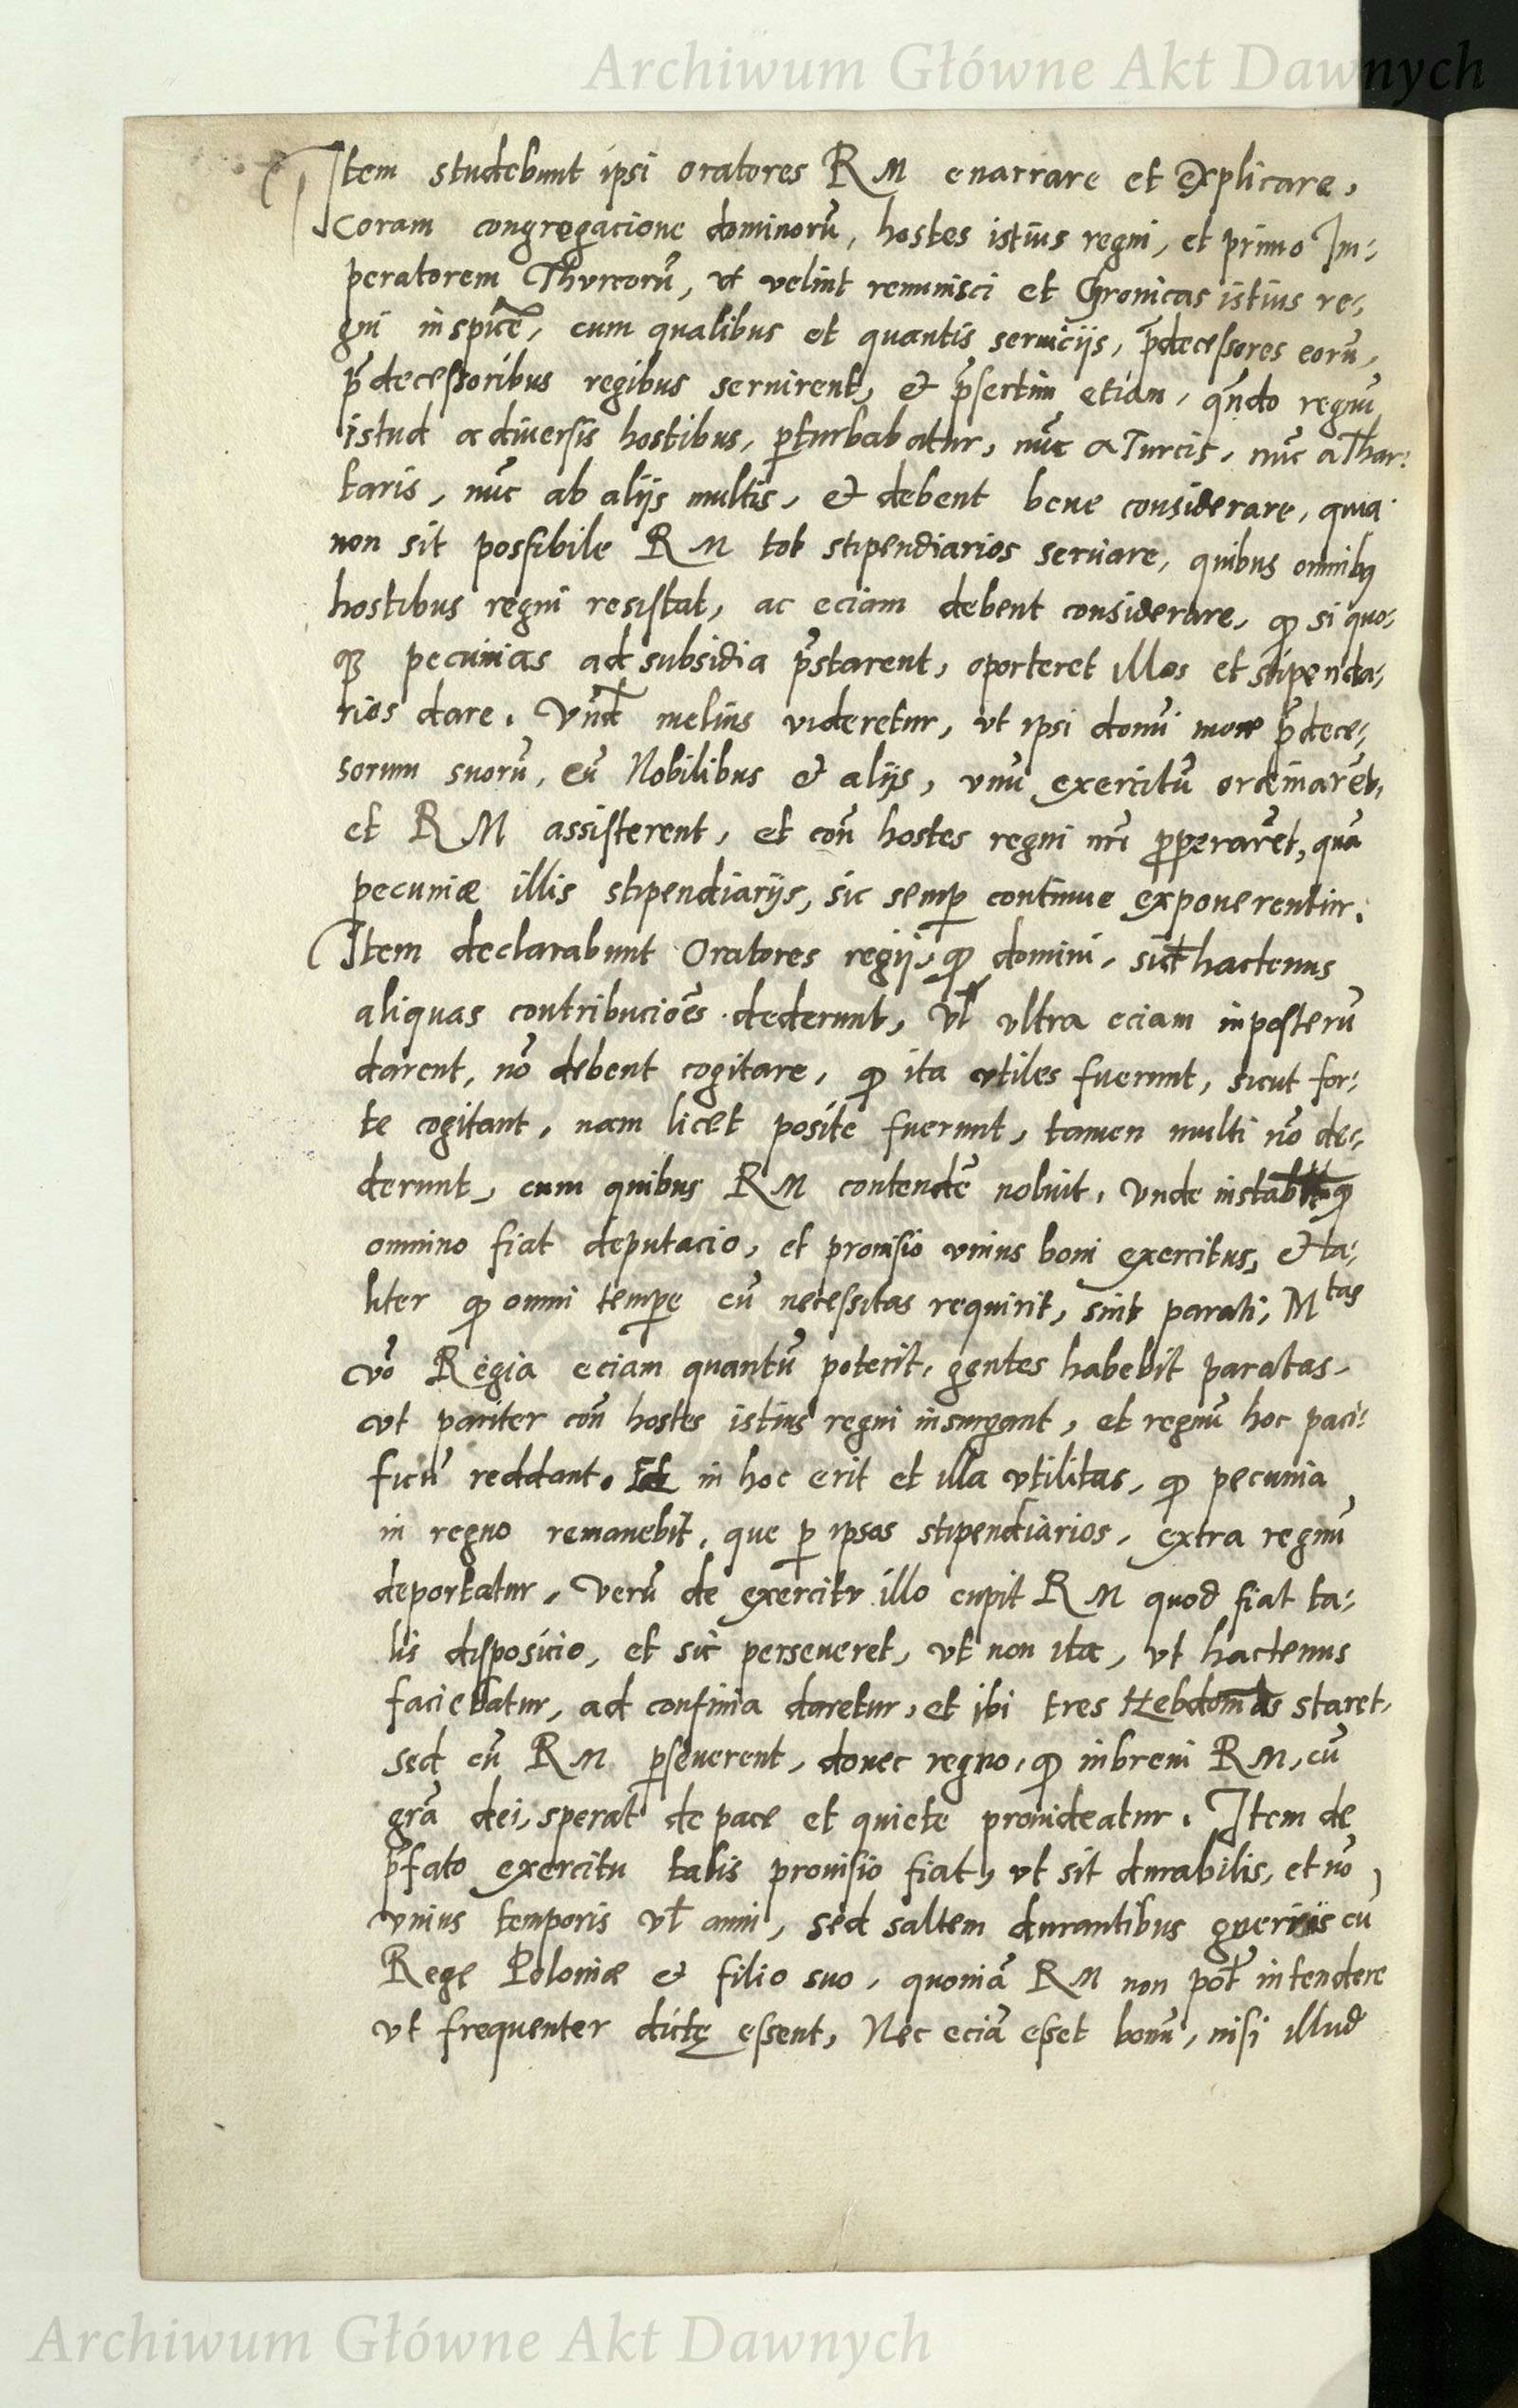 Archiwum Główne Akt Dawnych
Item studebunt ipsi oratores R M enarrare et explicare,
coram congregacione dominorũ, hostes istius regni, et primo Im-
peratorem Thurcorũ, ut velint reminisci et Cronicas istius re-
gni inspicẽ, cum qualibus et quantis seruicijs, p̃decessores eorũ,
p̃decessoribus regibus seruirent, et p̃sertim etiam, qñdo regnũ
istud a diuersis hostibus, perturbabatur, nũc a Turcis, nũc a Thar-
taris, nũc ab alijs multis, et debent bene considerare, quia
non sit possibile R M tot stipendiarios seruare, quibus omnibꝰ
hostibus regni resistat, ac eciam debent considerare, ꝙ si quo-
qꝫ pecunias ad subsidia p̃starent, oporteret illos et stipendia-
rios dare. Vnd̃ melius videretur, vt ipsi domĩ more p̃deces-
sorum suorũ, cũ Nobilibus et alijs, vnũ exercitũ ordinarẽt,
et R M assisterent, et coñ hostes regni nr̃i ꝓperarẽt, quã
pecuniæ illis stipendiarijs, sic semꝑ continue exponerentur.
Item declarabunt Oratores regij, ꝙ domini, sicut hactenus
aliquas contribuciões dederunt, vł vltra eciam inposterũ
darent, nõ debent cogitare, ꝙ ita vtiles fuerunt, sicut for-
te cogitant, nam licet posite fuerunt, tamen multi nõ de-
derunt, cum quibus R M contendẽ noluit. Vnde instabũt ꝙ
omnino fiat deputacio, et prouisio vnius boni exercitus, et ta-
liter ꝙ omni tempe cũ necessitas requirit, sint parati, Mtas
vo Regia eciam quantũ poterit, gentes habebit paratas,
vt pariter coñ hostes istius regni insurgant, et regnũ hoc paci-
ficũ reddant. Et in hoc erit et illa vtilitas, ꝙ pecunia
in regno remanebit, que ꝑ ipsos stipendiarios, extra regnũ
deportatur, Verũ de exercitu illo cupit R M quod fiat ta-
lis disposicio, et sic perseueret, vt non ita, vt hactenus
faciebatur, ad confinia daretur, et ibi tres Hebdomãs staret,
sed cũ R M ꝑseuerent, donec regno, ꝙ in breui R M, cũ
grã dei, sperat de pace et quiete prouideatur. Item de
p̃fato exercitu talis prouisio fiat, vt sit durabilis, et nõ
vnius temporis vł anni, sed saltem durantibus guerrijs cũ
Rege Poloniæ et filio suo, quoniã R M non põt intendere
vt frequenter dictę essent, Nec eciã esset bonũ, nisi illud
Archiwum Główne Akt Dawnych